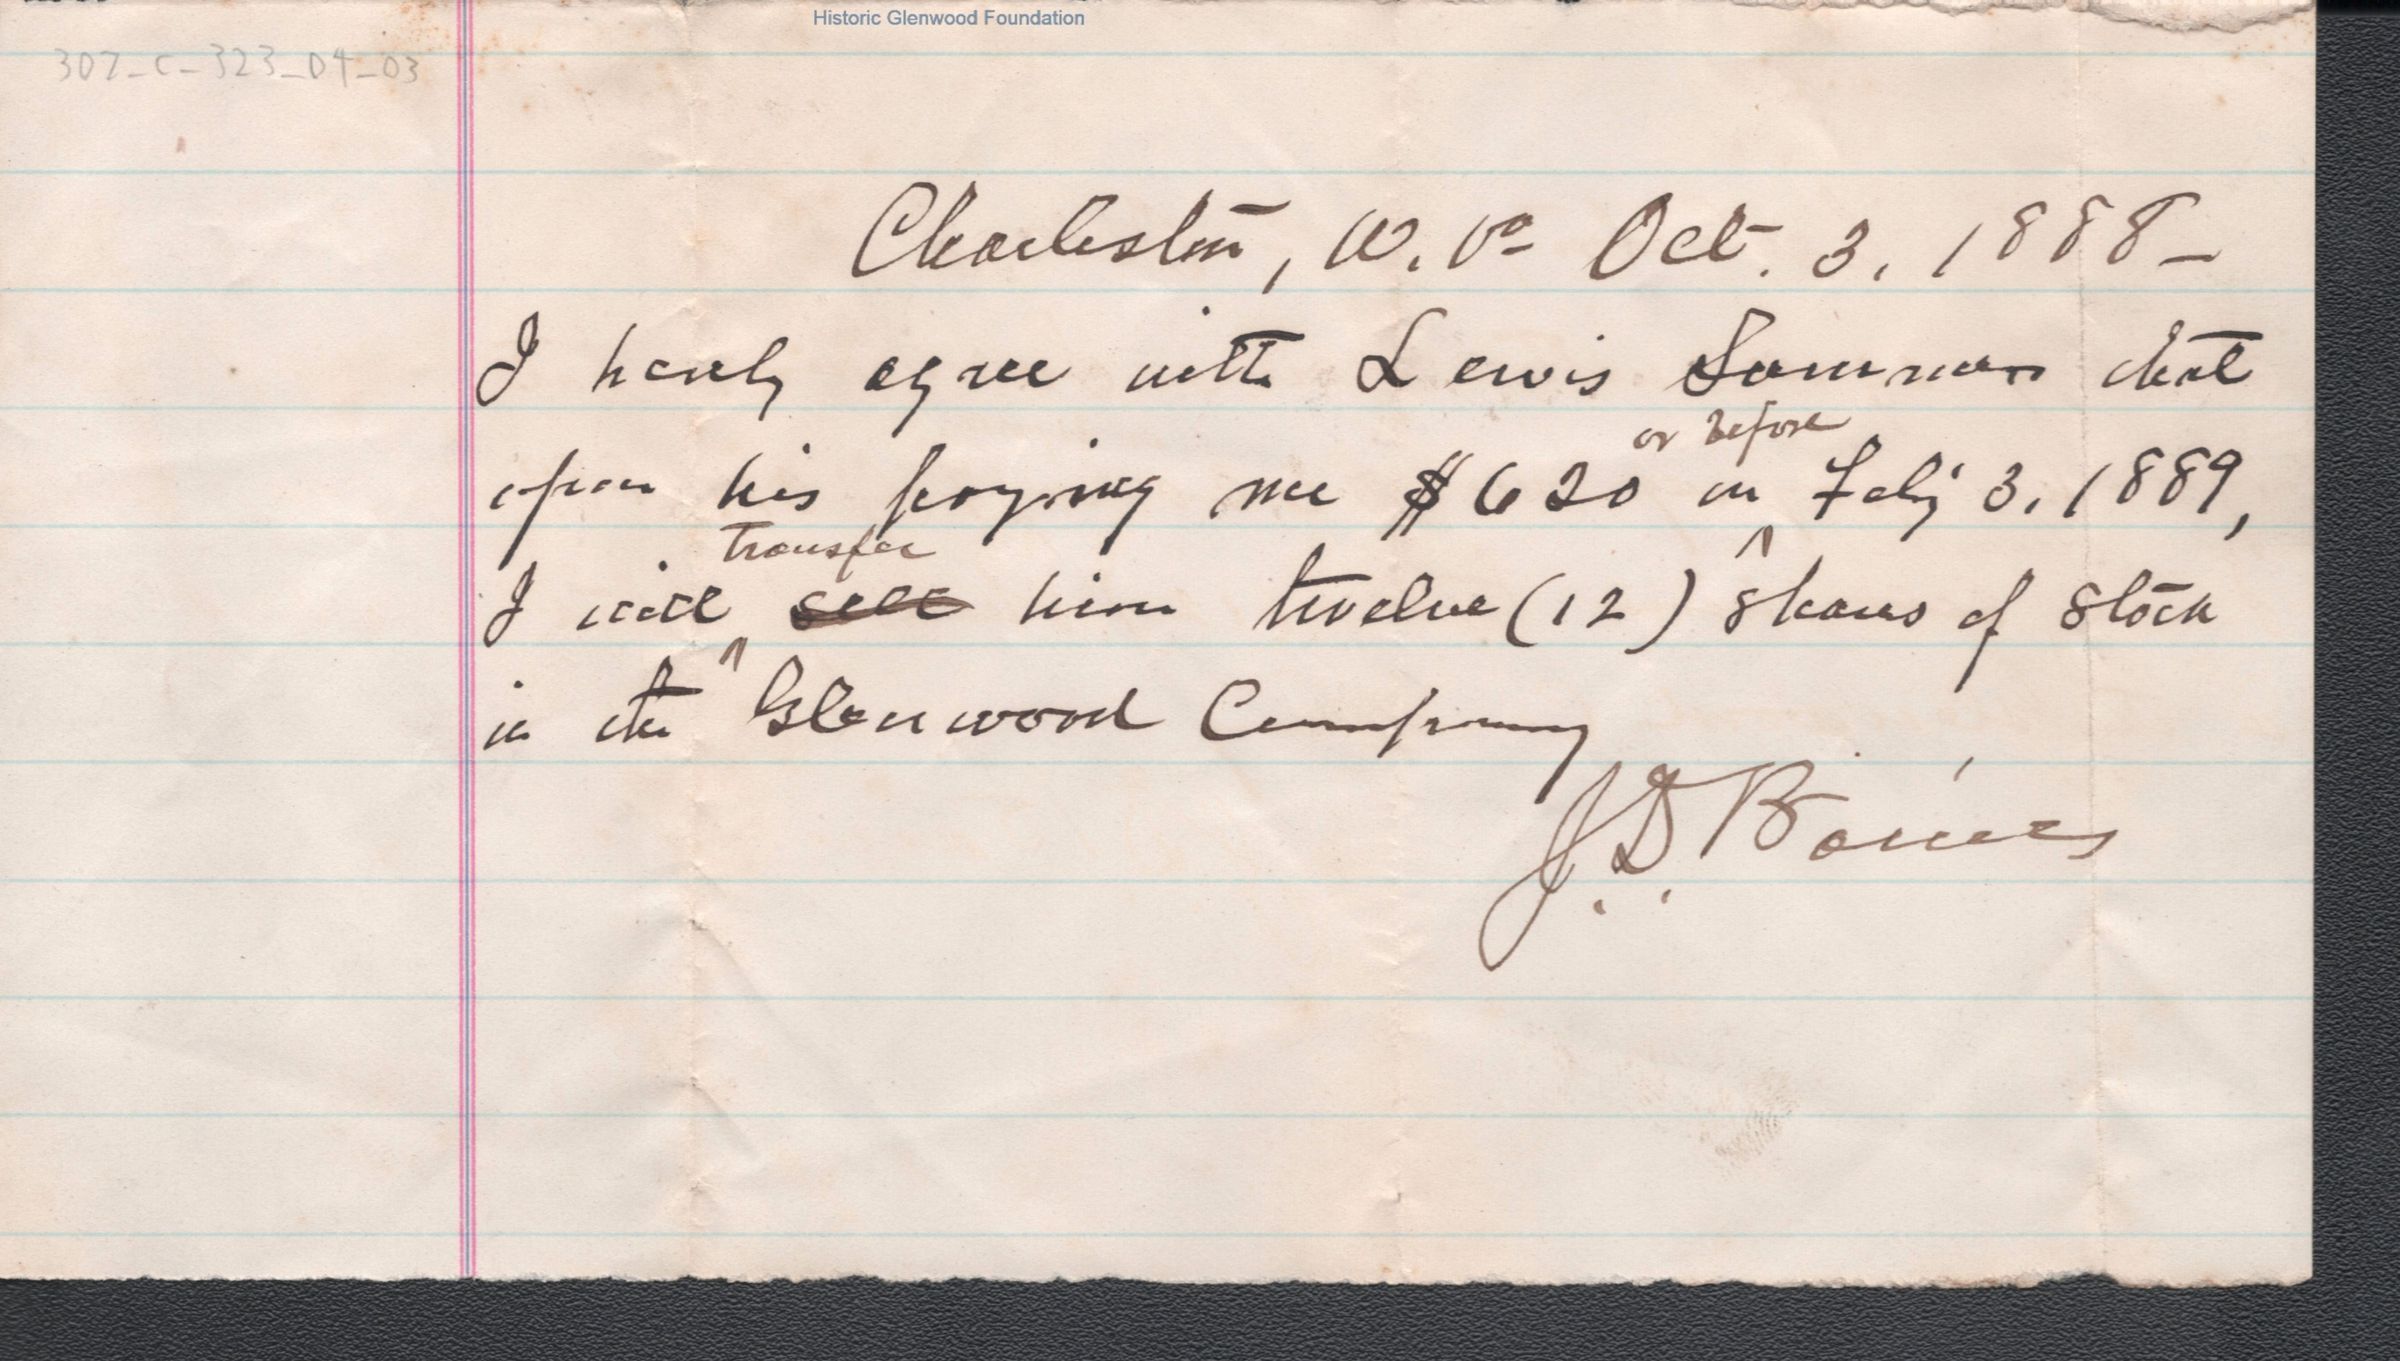 Historic Glenwood Foundation
307-C-323_04-03
Charleston, W. Va Oct. 3, 1888-
I hereby agree with Lewis Summers that
or before
upon his paying me $620 on Feby 3, 1889,
transfer
I will sell him twelve (12) shares of stock
in the Glenwood Company
J. D. Baines